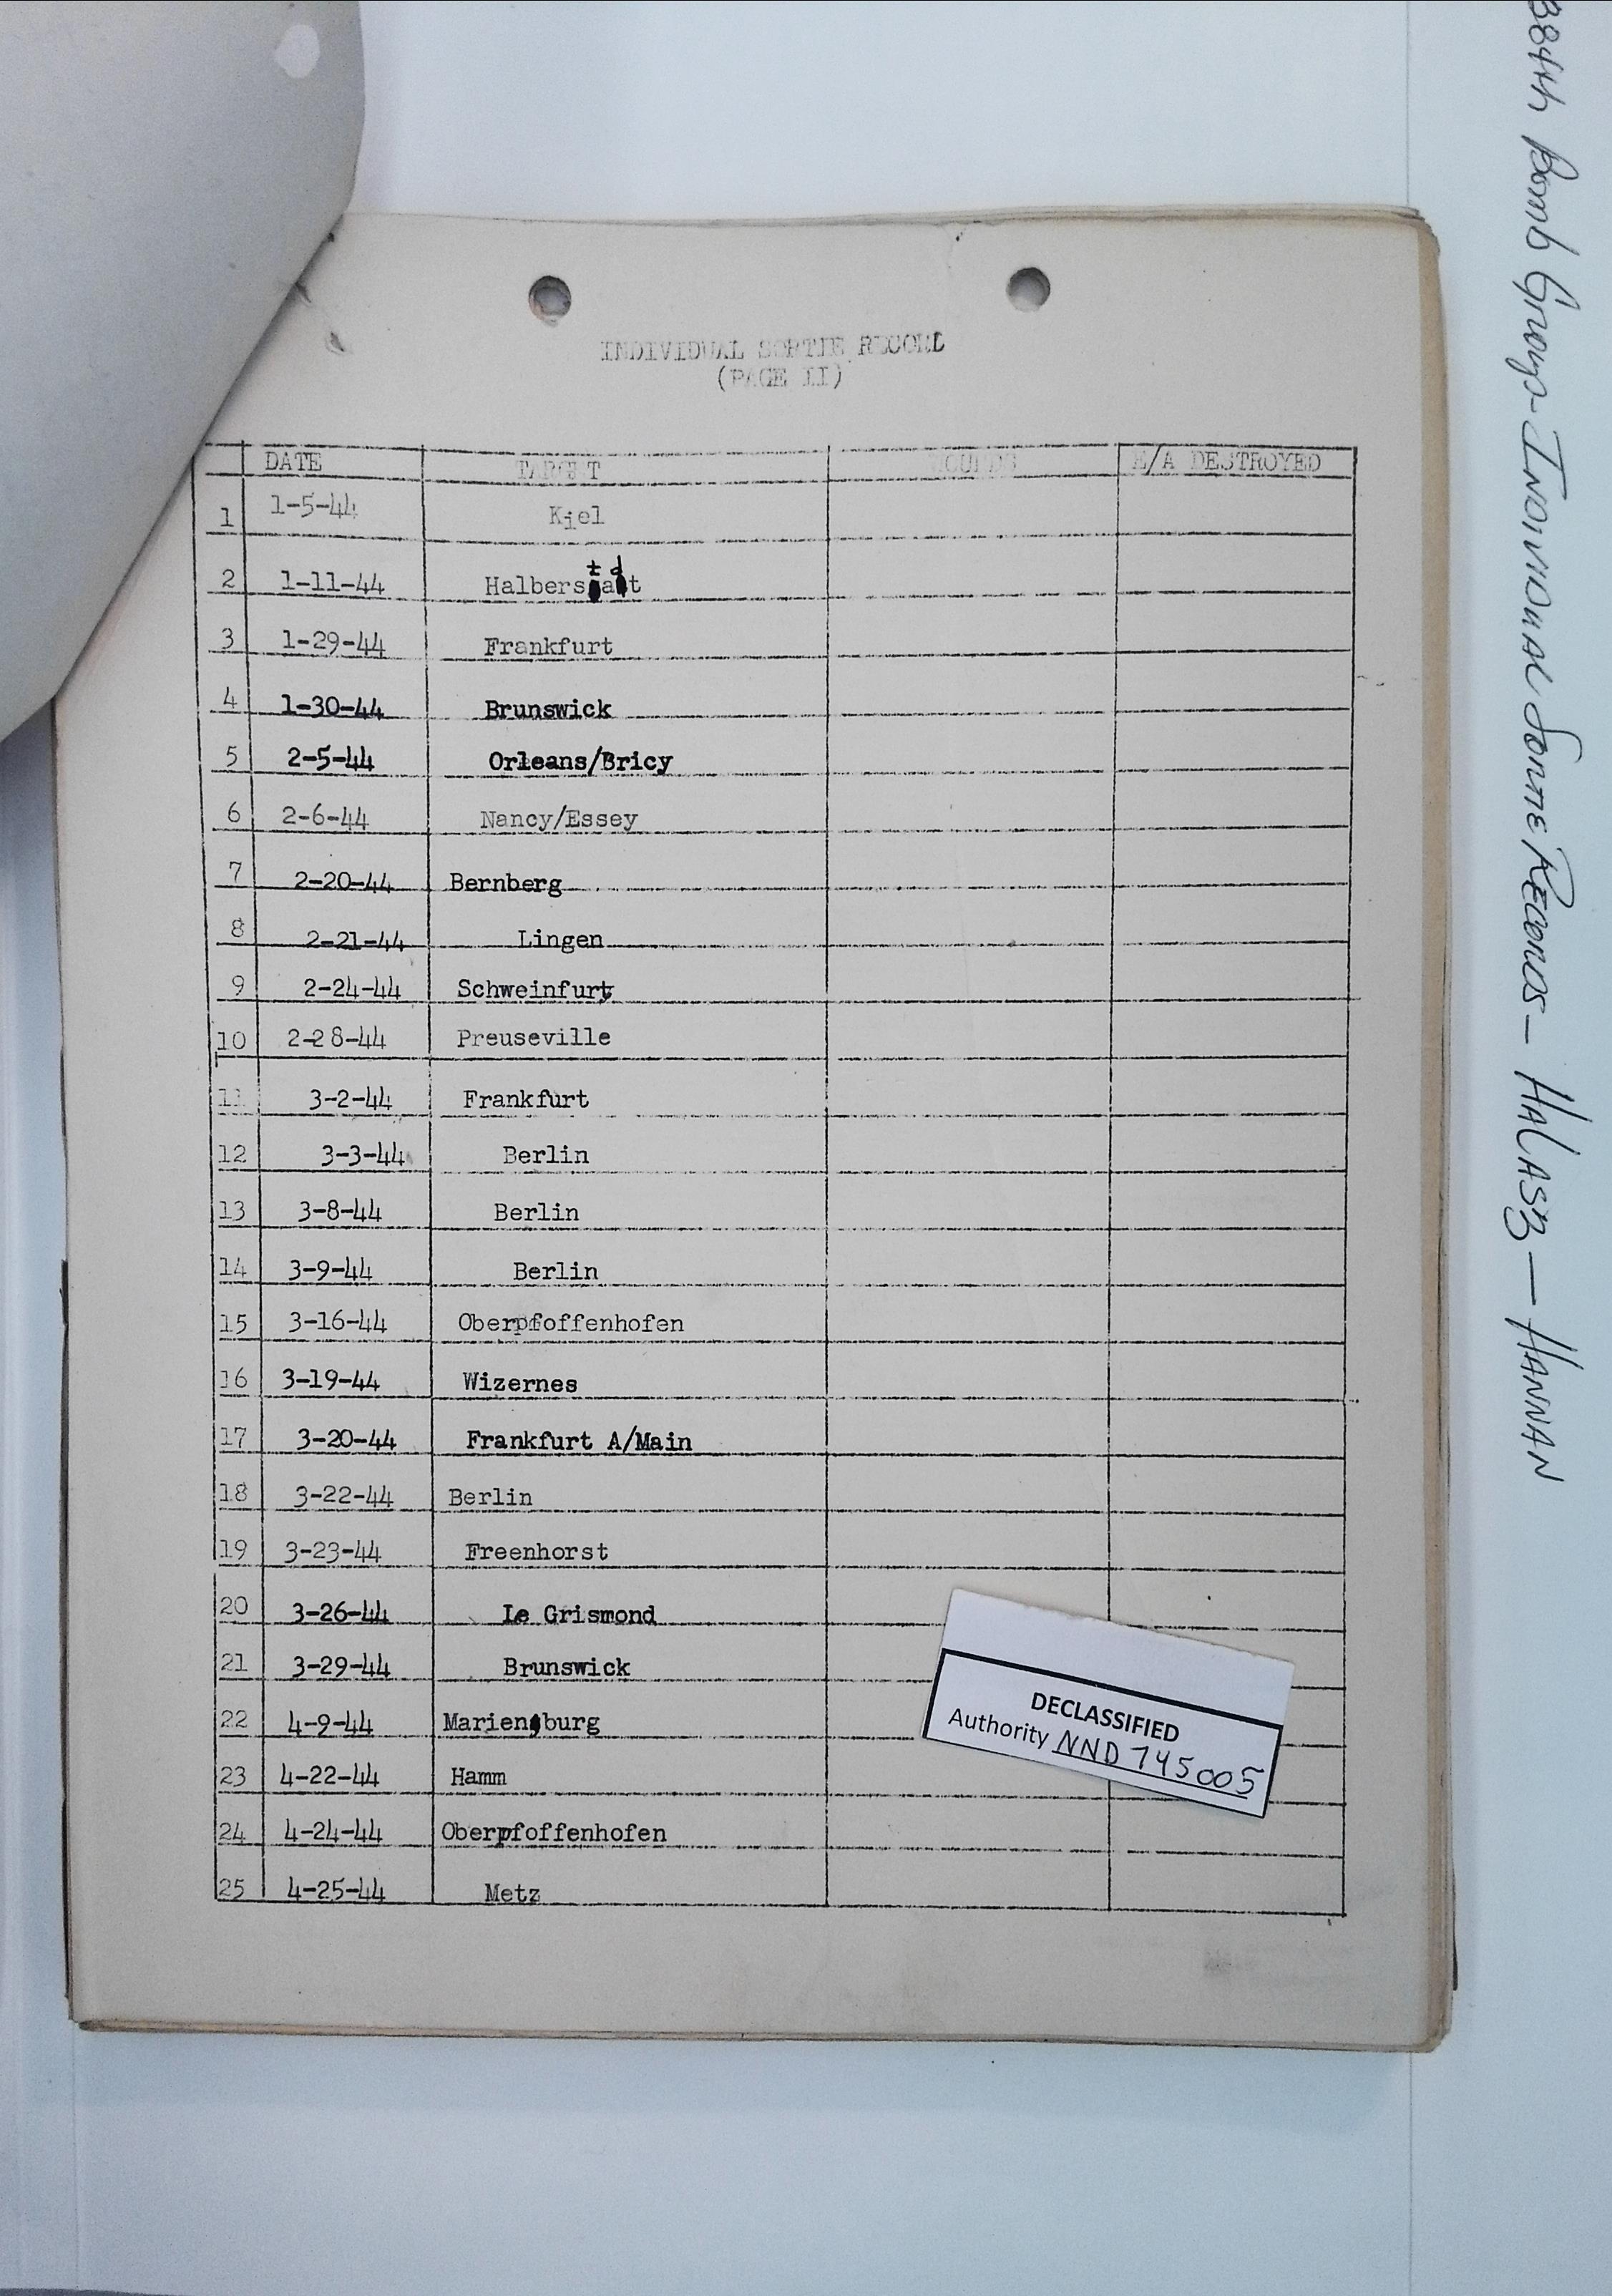 INDIVIDUAL SORTIE RECORD
(PAGE II)
DATE TARGET WOUNDS E/A DESTROYED
1 1-5-44 Kiel
2 1-11-44 Halberstadt
3 1-29-44 Frankfurt
4 1-30-44 Brunswick
5 2-5-44 Orleans/Bricy
6 2-6-44 Nancy/Essey
7 2-20-44 Bernberg
8 2-21-44 Lingen
9 2-24-44 Schweinfurt
10 2-28-44 Preuseville
11 3-2-44 Frankfurt
12 3-3-44 Berlin
13 3-8-44 Berlin
14 3-9-44 Berlin
15 3-16-44 Oberpfoffenhofen
16 3-19-44 Wizernes
17 3-20-44 Frankfurt A/Main
18 3-22-44 Berlin
19 3-23-44 Freenhorst
20 3-26-44 Le Grismond
21 3-29-44 Brunswick
22 4-9-44 Marienburg
23 4-22-44 Hamm
24 4-24-44 Oberpfoffenhofen
25 4-25-44 Metz
DECLASSIFIED
Authority NND 745005
384th Bomb Group-Individual Sortie Records-Halasz-Hannan